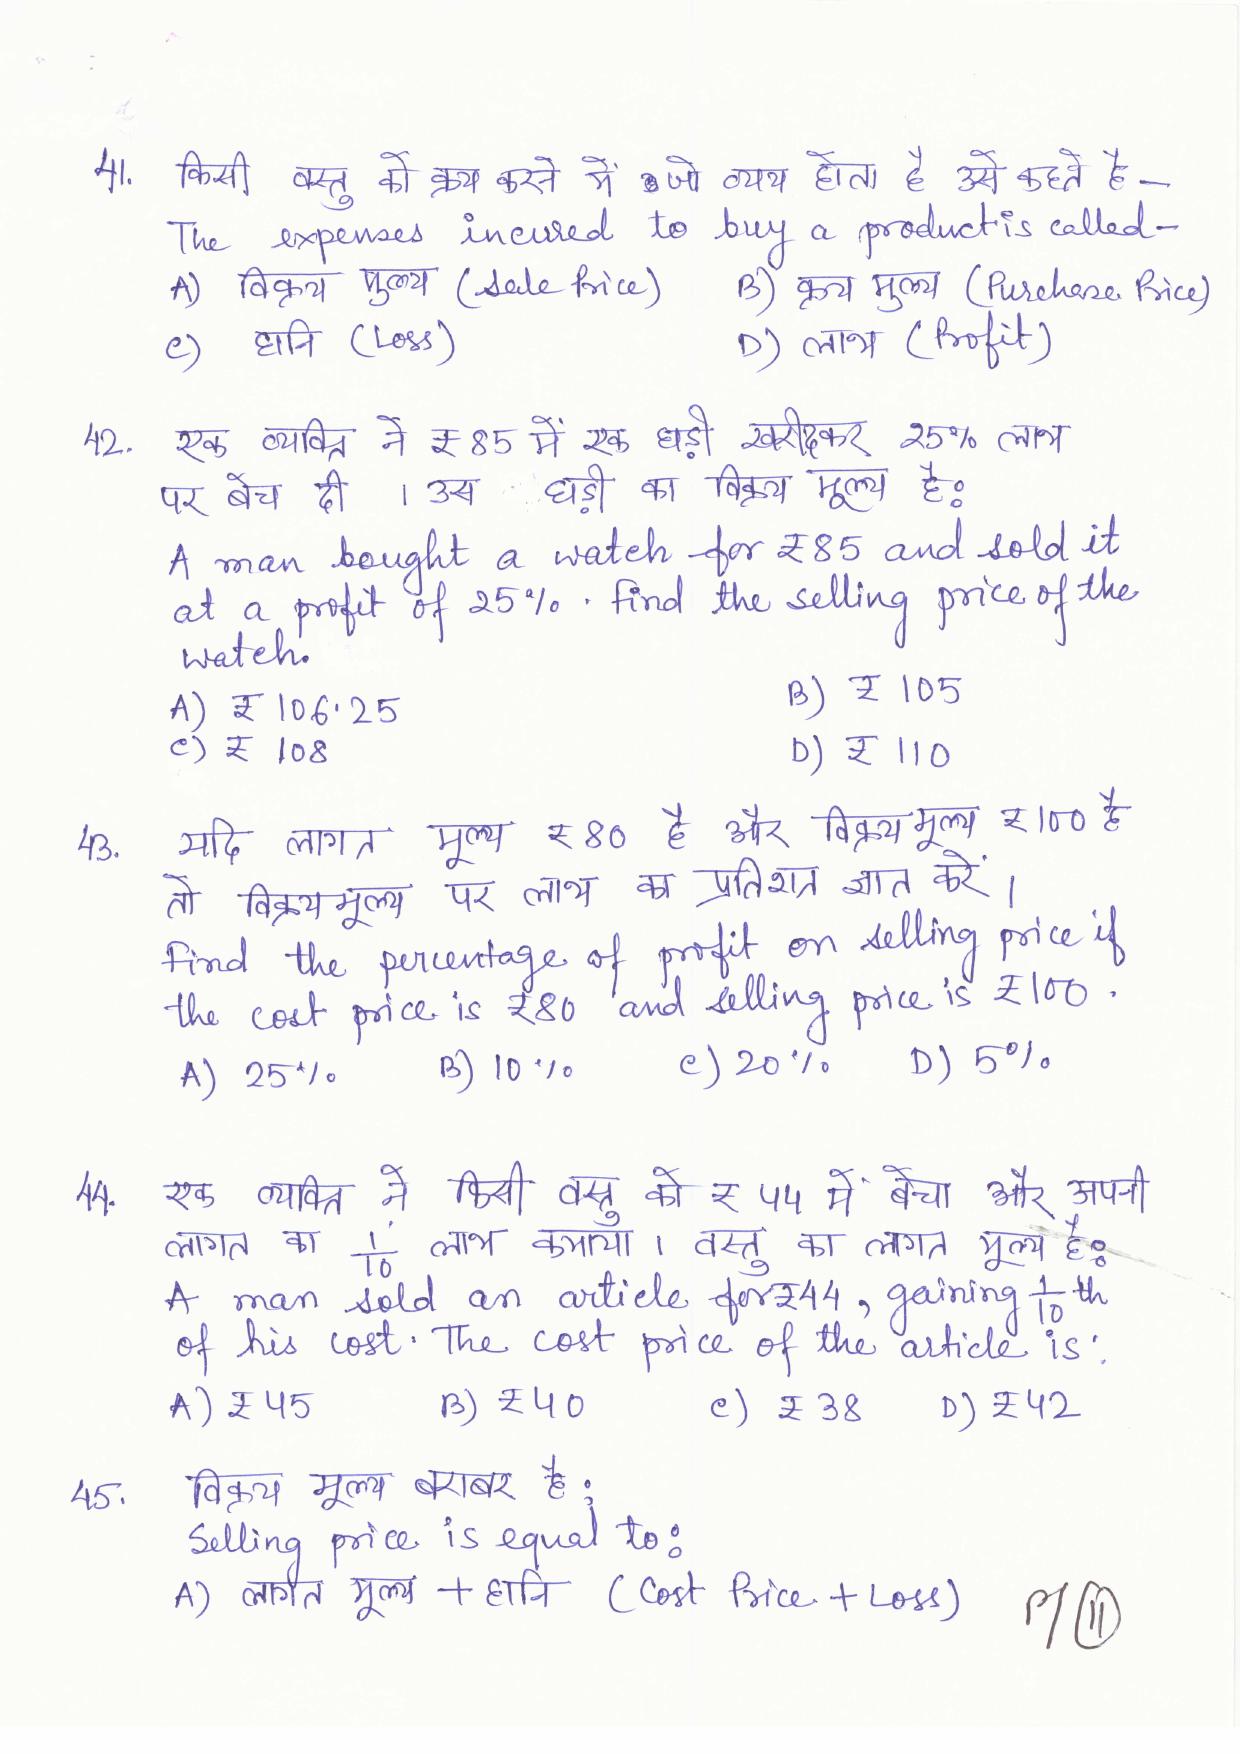 41. किसी वस्तु को क्रय करने में जो व्यय होता है उसे कहते है –
The expenses incured to buy a product is called –
A) विक्रय मुल्य (Sale Price) B) क्रय मुल्य (Purchase Price)
C) हानि (Loss) D) लाभ (Profit)
42. एक व्यक्ति ने ₹85 में एक घड़ी खरीदकर 25% लाभ
पर बेंच दी । उस घड़ी का विक्रय मूल्य है:
A man bought a watch for ₹85 and sold it
at a profit of 25%. find the selling price of the
watch.
A) ₹ 106.25 B) ₹ 105
C) ₹ 108 D) ₹ 110
43. यदि लागत मूल्य ₹80 है और विक्रय मूल्य ₹100 है
तो विक्रय मूल्य पर लाभ का प्रतिशत ज्ञात करें ।
Find the percentage of profit on selling price if
the cost price is ₹80 and selling price is ₹100.
A) 25% B) 10% C) 20% D) 5%
44. एक व्यक्ति ने किसी वस्तु को ₹ 44 में बेंचा और अपनी
लागत का 1/10 लाभ कमाया । वस्तु का लागत मूल्य है:
A man sold an article for ₹44, gaining 1/10 th
of his cost. The cost price of the article is:
A) ₹45 B) ₹40 C) ₹38 D) ₹42
45. विक्रय मूल्य बराबर है:
Selling price is equal to:
A) लागत मूल्य + हानि (Cost Price + Loss)
P/11